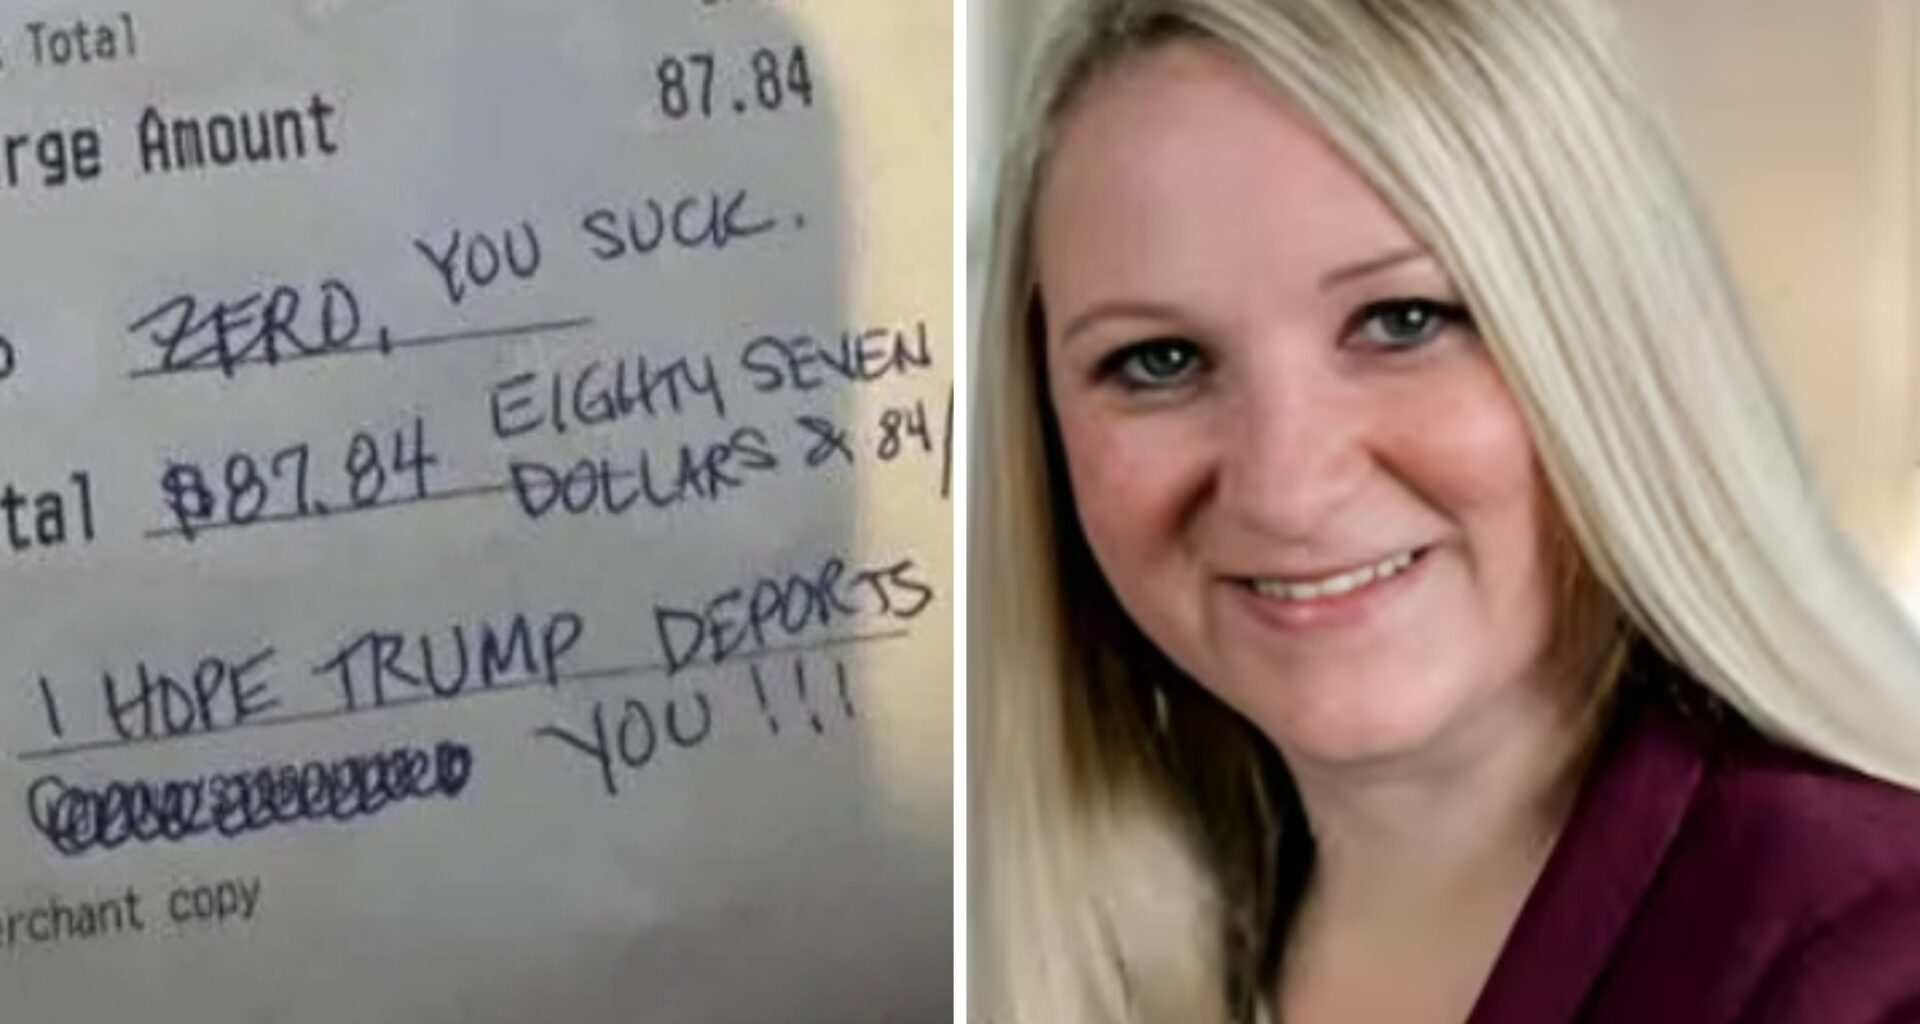 Total
rge Amount 87.84
ZERO, YOU SUCK.
tal $87.84 EIGHTY SEVEN
DOLLARS & 84/
I HOPE TRUMP DEPORTS
YOU!!!
erchant copy